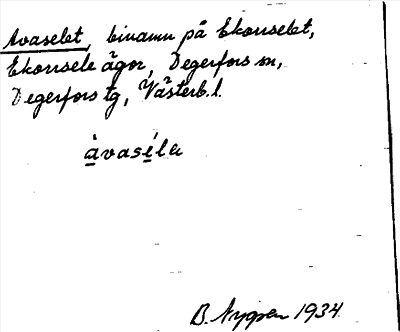 Avaselet, binamn på Ekorrselet,
Ekorrsele ägor, Degerfors sn,
Degerfors tg, Västerb. l.
àvasélɐ
B. Nygren 1934